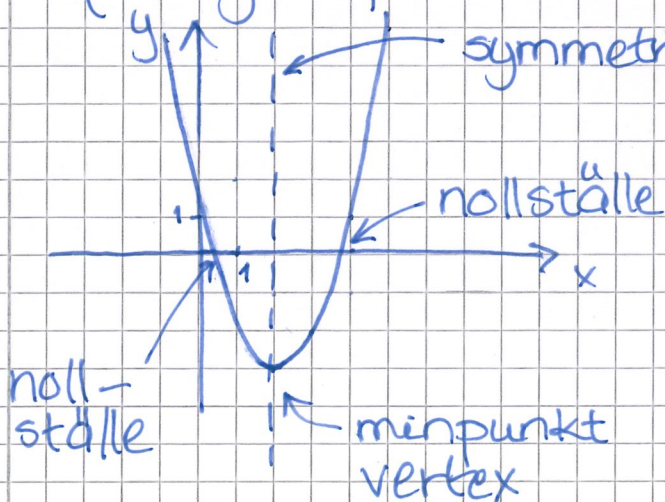 y
symmetr
nollställe
1
1
x
noll-
ställe
minpunkt
vertex